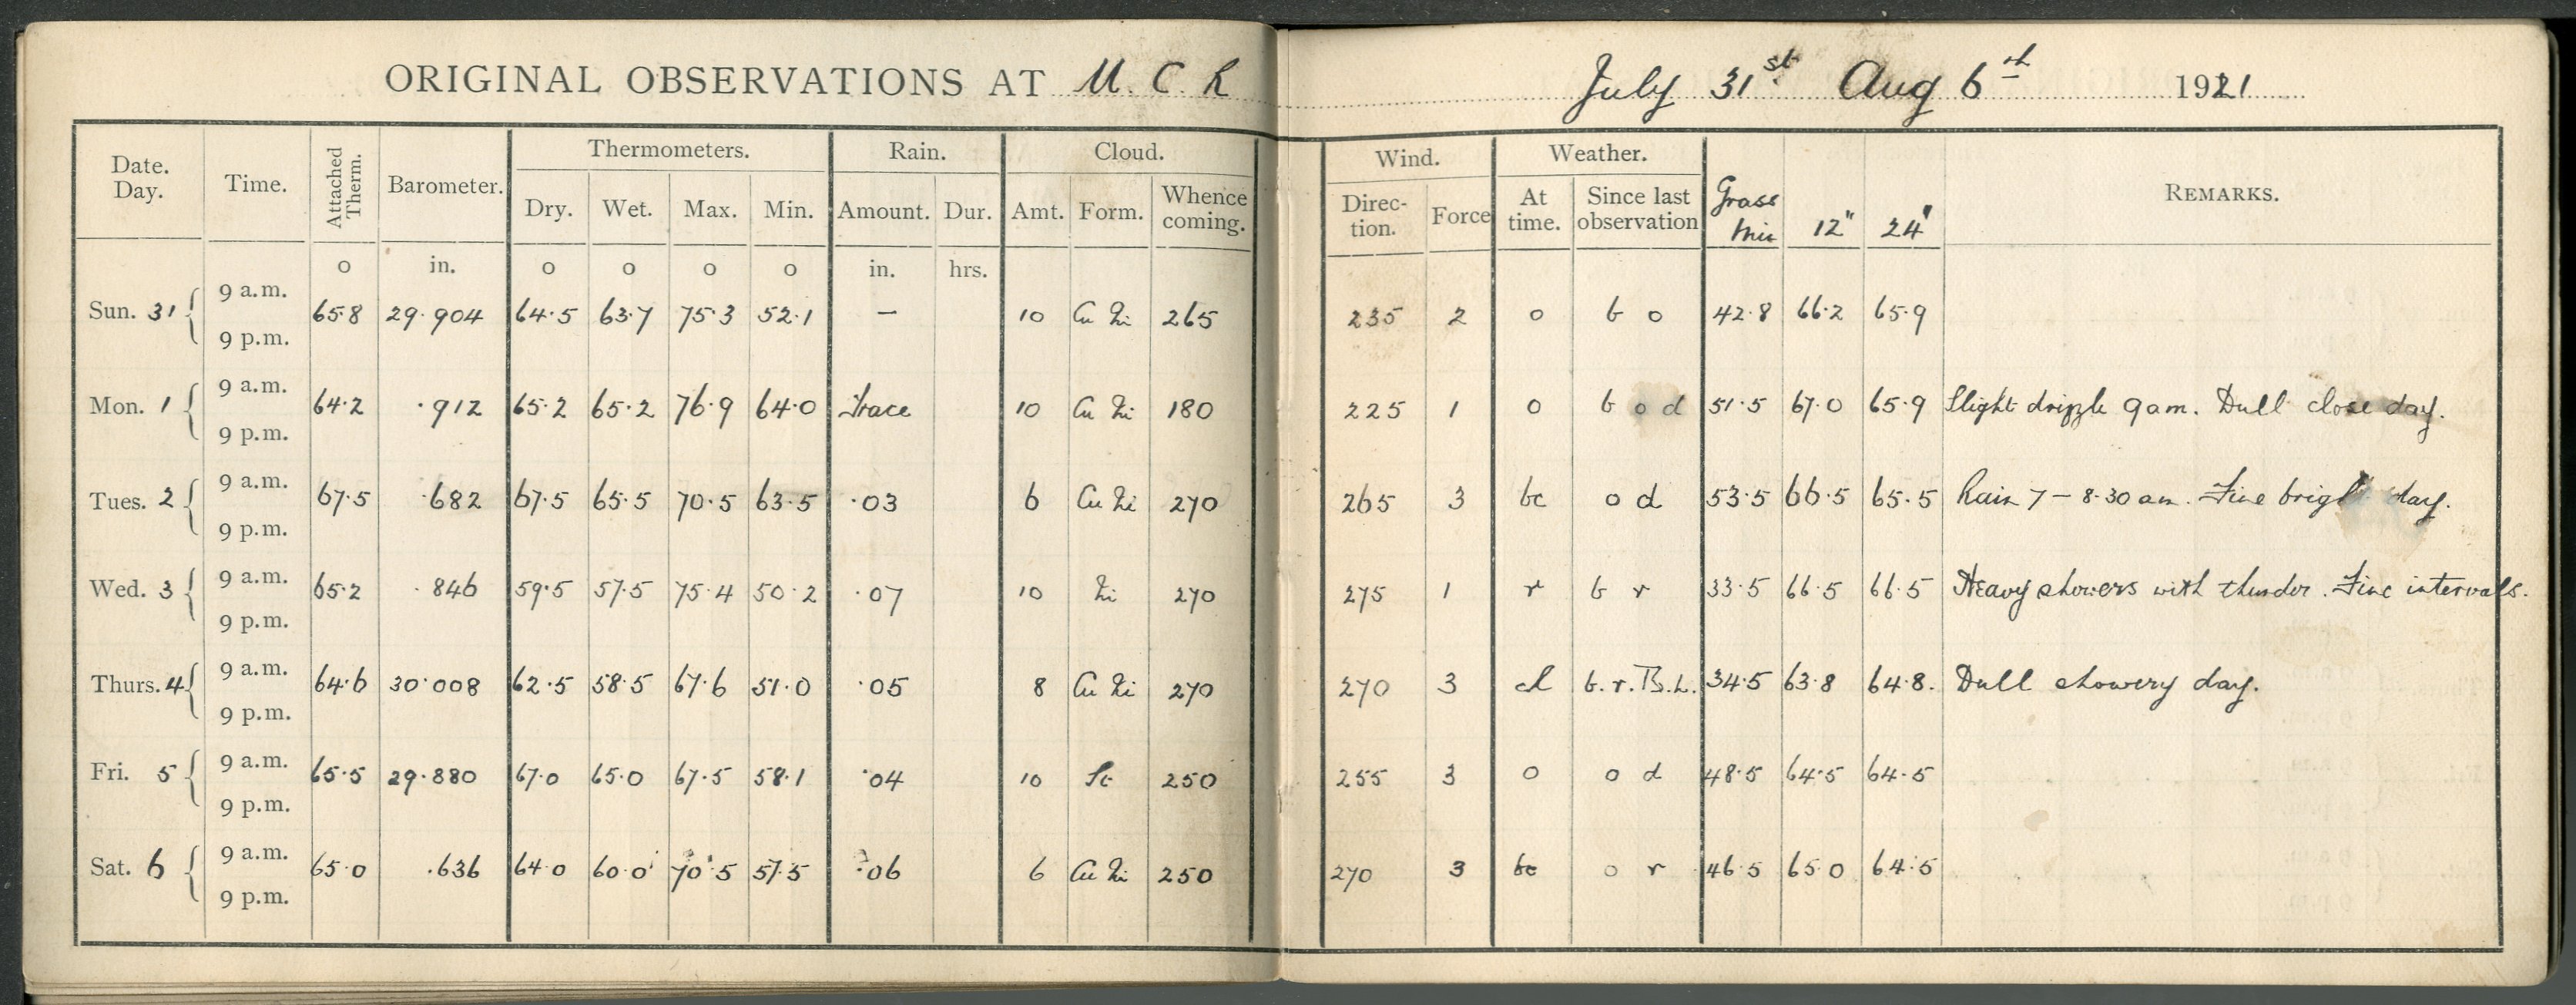 ORIGINAL OBSERVATIONS AT M. C. R July 31st Aug 6th 1921
Date. Day. Time. Attached Therm. Barometer. Thermometers. Rain. Cloud. Wind. Weather. Grass Min 12" 24" REMARKS.
Dry. Wet. Max. Min. Amount. Dur. Amt. Form. Whence coming. Direc- tion. Force At time. Since last observation
o in. o o o o in. hrs.
Sun. 31 9 a.m. 9 p.m. 65.8 29.904 64.5 63.7 75.3 52.1 — 10 Cu Ni 265 235 2 o b o 42.8 66.2 65.9
Mon. 1 9 a.m. 9 p.m. 64.2 .912 65.2 65.2 76.9 64.0 Trace 10 Cu Ni 180 225 1 o b o d 51.5 67.0 65.9 Slight drizzle 9am. Dull close day.
Tues. 2 9 a.m. 9 p.m. 67.5 .682 67.5 65.5 70.5 63.5 .03 6 Cu Ni 270 265 3 bc o d 53.5 66.5 65.5 Rain 7 – 8.30 am. Fine bright day.
Wed. 3 9 a.m. 9 p.m. 65.2 .846 59.5 57.5 75.4 50.2 .07 10 Ni 270 275 1 r b r 33.5 66.5 66.5 Heavy showers with thunder. Fine intervals.
Thurs. 4 9 a.m. 9 p.m. 64.6 30.008 62.5 58.5 67.6 51.0 .05 8 Cu Ni 270 270 3 d b.r.T.L. 34.5 63.8 64.8. Dull showery day.
Fri. 5 9 a.m. 9 p.m. 65.5 29.880 67.0 65.0 67.5 58.1 .04 10 St 250 255 3 o o d 48.5 64.5 64.5
Sat. 6 9 a.m. 9 p.m. 65.0 .636 64.0 60.0 70.5 57.5 .06 6 Cu Ni 250 270 3 bc o r 46.5 65.0 64.5